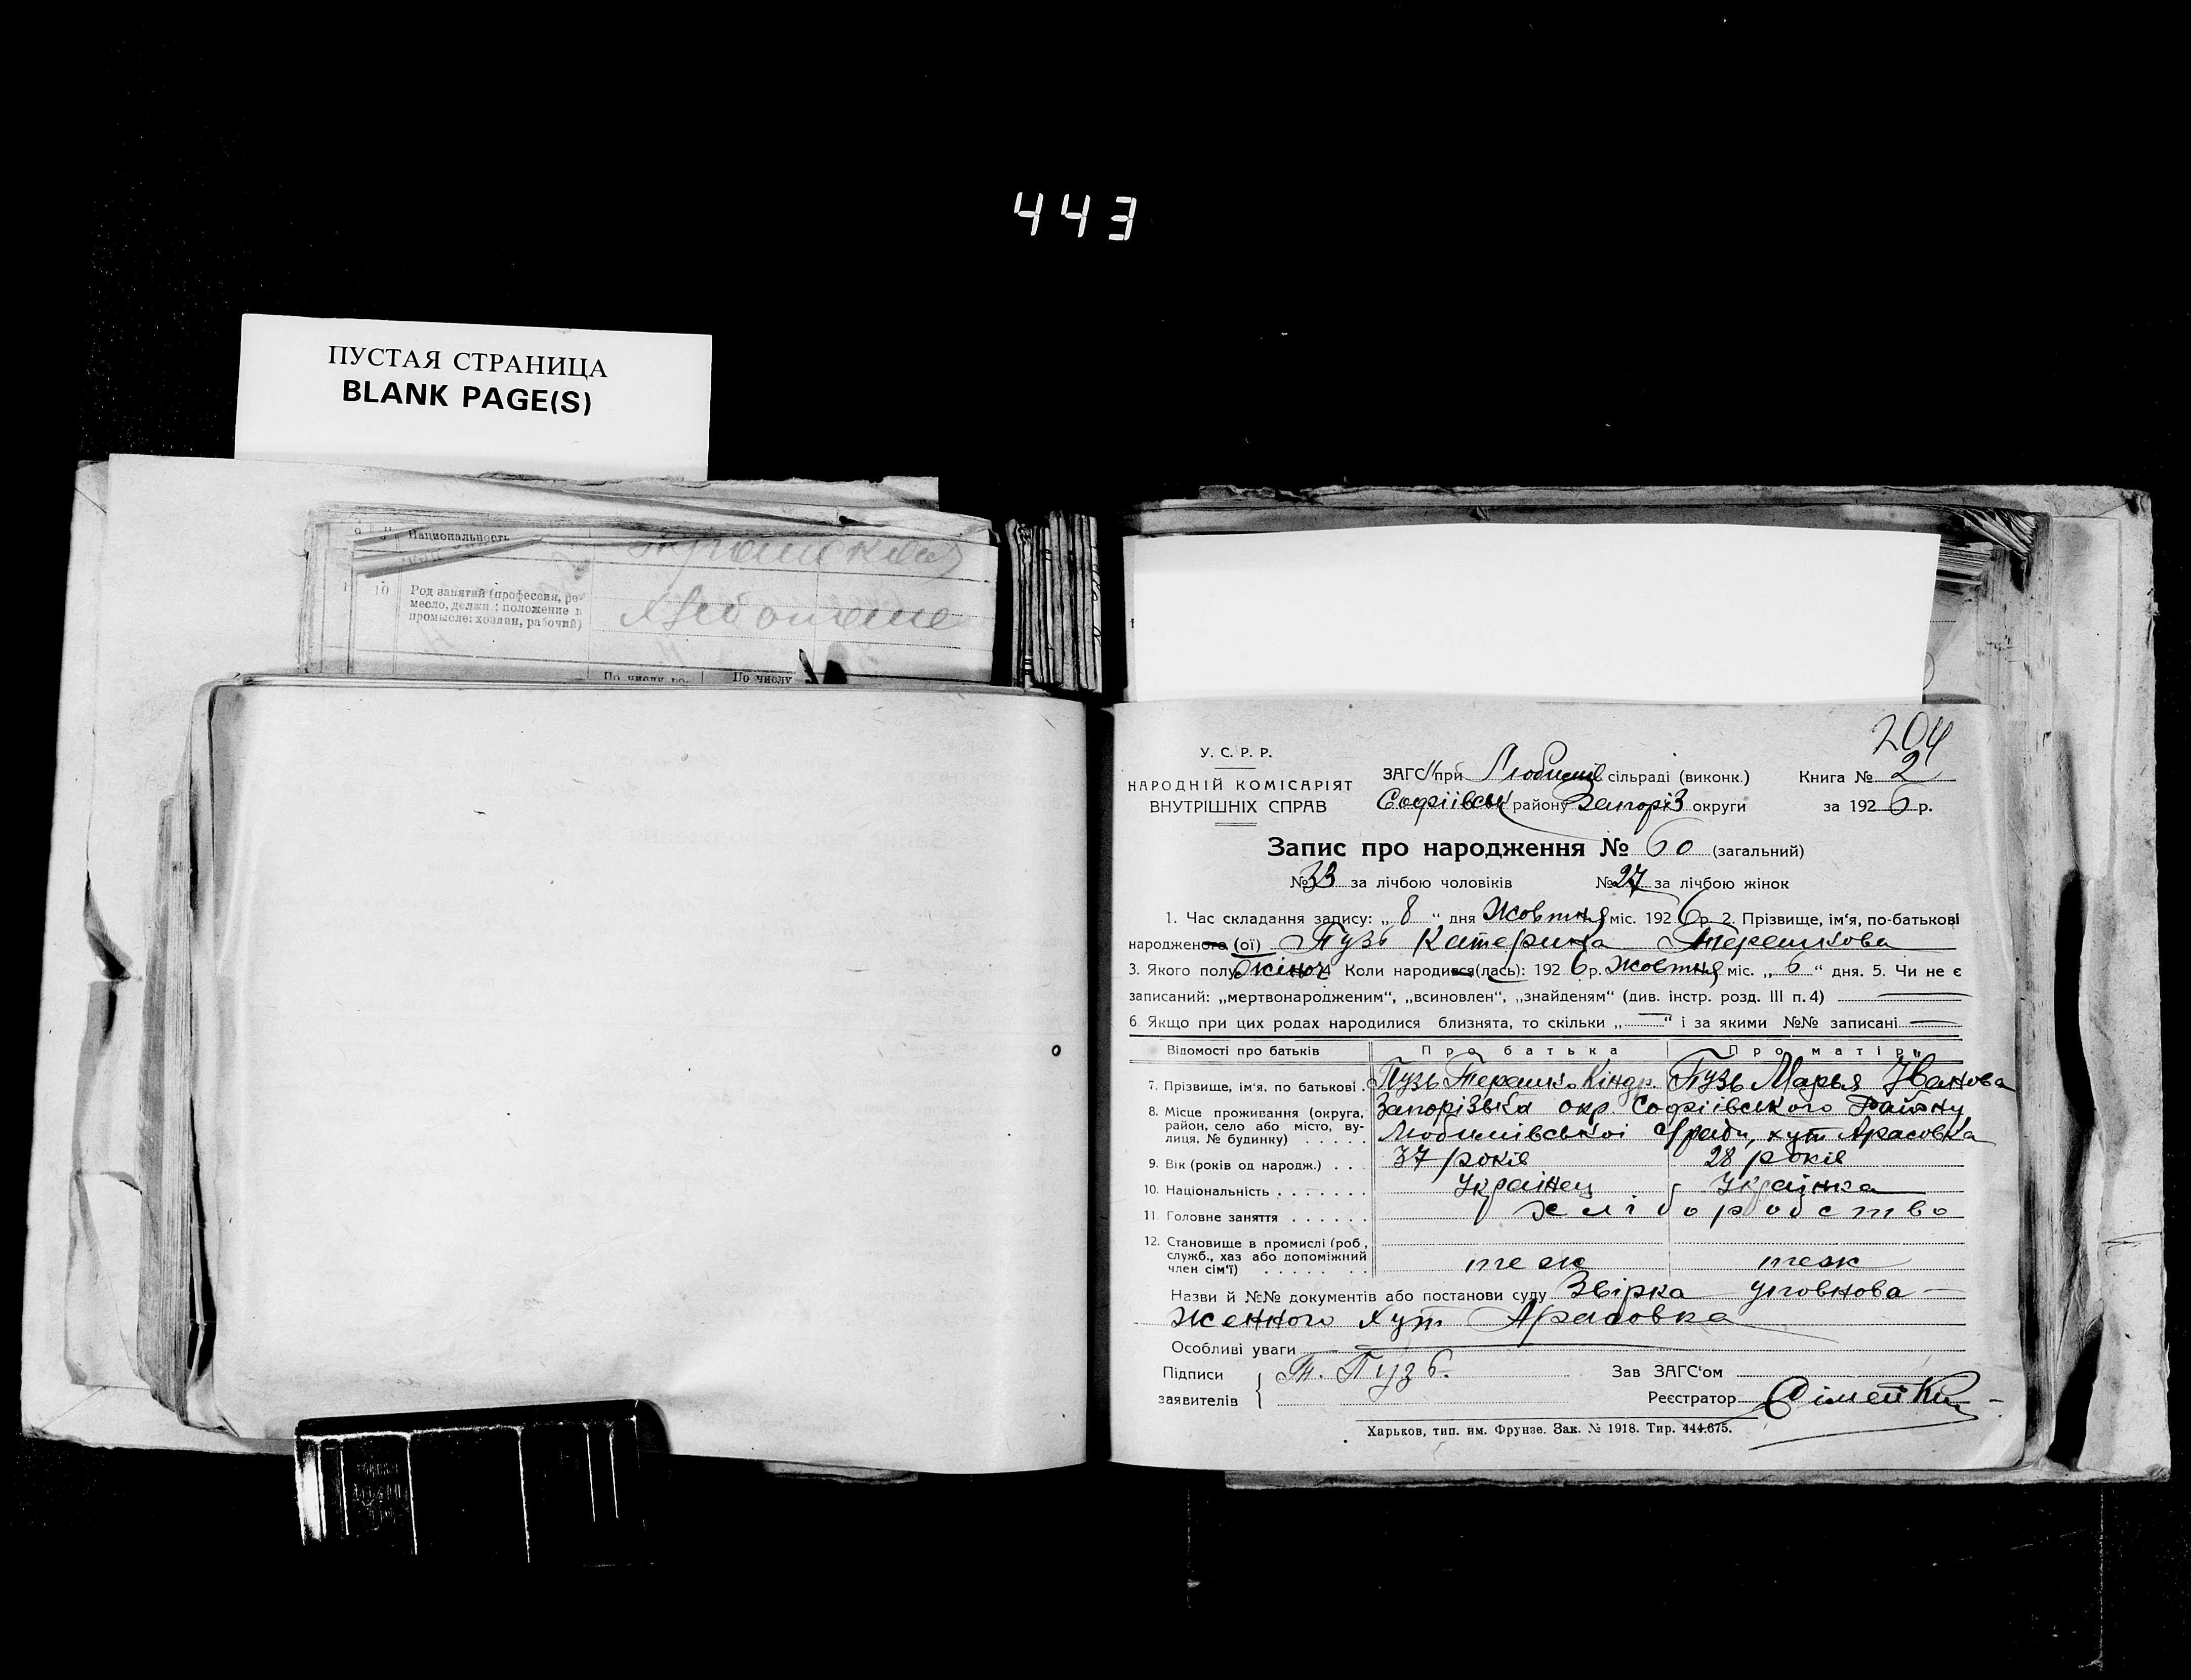 443
ПУСТАЯ СТРАНИЦА
BLANK PAGE(S)
Национальность
10 Род занятий (профессия, ре-
месло, должн; положение в
промысле: хозяин, рабочий)
По числу
204
У. С. Р. Р.
НАРОДНІЙ КОМІСАРІЯТ
ВНУТРІШНІХ СПРАВ
ЗАГС при Любимів сільраді (виконк.) Книга № 2
Софіївськ району Запоріз округи за 1926 р.
Запис про народження № 60 (загальний)
№ 33 за лічбою чоловіків № 27 за лічбою жінок
1. Час складання запису: „ 8 “ дня Жовтня міс. 1926 р. 2. Прізвище, ім‘я, по-батькові
народженого (ої) Пузь Катерина Терешкова
3. Якого полу жіноч 4 Коли народився(лась): 1926 р. Жовтня міс. „ 6 “ дня. 5. Чи не є
записаний: „мертвонародженим“, „всиновлен“, „знайденям“ (див. інстр. розд. III п. 4)
6. Якщо при цих родах народилися близнята, то скільки „ — “ і за якими №№ записані —
Відомості про батьків Про батька Про матір
7. Прізвище, ім‘я, по батькові Пузь Терешко Кіндр. Пузь Марья Іванова
8. Місце проживання (округа,
район, село або місто, ву-
лиця, № будинку)
Запорізька окр. Софіївського Району
Любимівської с/ради, хут Арасовка
9. Вік (років од народж.) 37 років 28 років
10. Національність Українец Українка
11. Головне заняття хліборобство
12. Становище в промислі (роб.,
служб., хаз або допоміжний
член сім‘ї) теж теж
Назви й №№ документів або постанови суду Звірка уповнова-
женного хут Арасовка
Особливі уваги
Підписи
заявителів
Т. Пузь.
Зав ЗАГС‘ом
Реєстратор
Харьков, тип. им. Фрунзе. Зак. № 1918. Тир. 444.675.